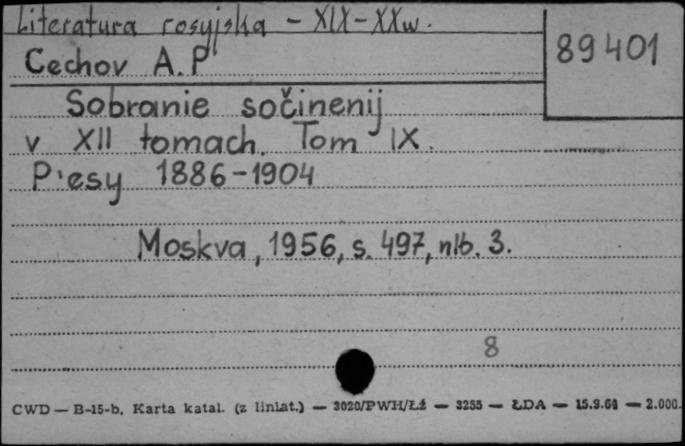 Literatura rosyjska - XIX-XXw.
Cechov A.P
89401
Sobranie sočinenij
v XII tomach. Tom IX.
P'esy 1886-1904
Moskva, 1956, s. 497, nlb. 3.
8
CWD — B-15-b, Karta katal. (z liniat.) — 3020/PWH/Łż — 3255 — ŁDA — 15.9.64 — 2.000.